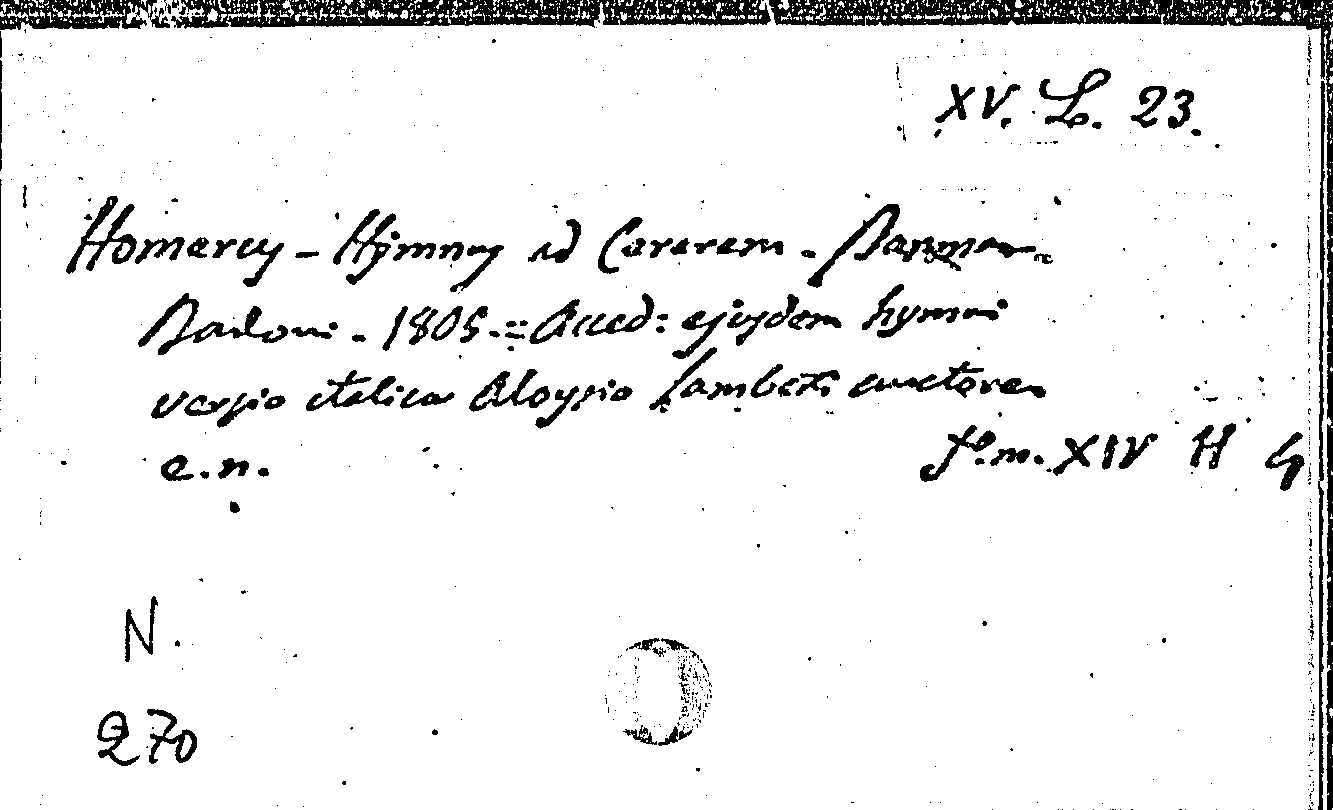 XV. L. 23.
Homerus - Hymnus ad Cererem - Parmae
Bodoni - 1805. = Acced: ejusdem hymni
versio italica Aloysio Lamberti auctore
e. n. fo. m. XIV H
N.
270